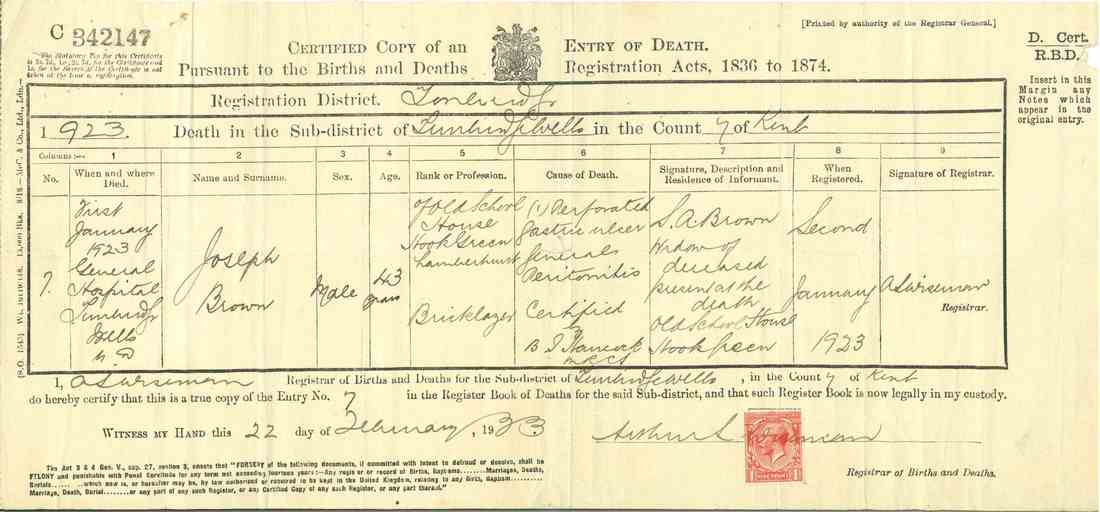 C 342147
[Printed by authority of the Registrar General.]
The Statutory Fee for this Certificate
CERTIFIED COPY OF AN ENTRY OF DEATH.
PURSUANT TO THE BIRTHS AND DEATHS REGISTRATION ACTS, 1836 TO 1874.
D. Cert.
R.B.D.
Insert in this
Margin any
Notes which
appear in the
original entry.
Registration District. Tonbridge
1923. Death in the Sub-district of Tunbridge Wells in the County of Kent
Columns :— 1 2 3 4 5 6 7 8 9
No. When and where Died. Name and Surname. Sex. Age. Rank or Profession. Cause of Death. Signature, Description and Residence of Informant. When Registered. Signature of Registrar.
7.
First
January
1923
General
Hospital
Tunbridge
Wells
Joseph
Brown
Male
43
years
of Old School
House
Hook Green
Lamberhurst
Bricklayer
(1) Perforated
Gastric ulcer
General
Peritonitis
Certified
by
Hancock
MRCS
S. A. Brown
Widow of
deceased
present at the
death
Old School House
Hook Green
Second
January
1923
A S Wiseman
Registrar.
I, A S Wiseman Registrar of Births and Deaths for the Sub-district of Tunbridge Wells, in the County of Kent
do hereby certify that this is a true copy of the Entry No. 7 in the Register Book of Deaths for the said Sub-district, and that such Register Book is now legally in my custody.
WITNESS MY HAND this 22 day of February, 1933
Arthur S Wiseman
Registrar of Births and Deaths.
The Act 3 & 4 Geo. V., cap. 27, section 3, enacts that "FORGERY of the following documents, if committed with intent to defraud or deceive, shall be
FELONY and punishable with Penal Servitude for any term not exceeding fourteen years :—Any register or record of Births, Baptisms........Marriages, Deaths,
Burials........which now is, or hereafter may be, by law authorised or required to be kept in the United Kingdom, relating to any Birth, Baptism........
Marriage, Death, Burial........or any part of any such Register, or any Certified Copy of any such Register, or any part thereof."